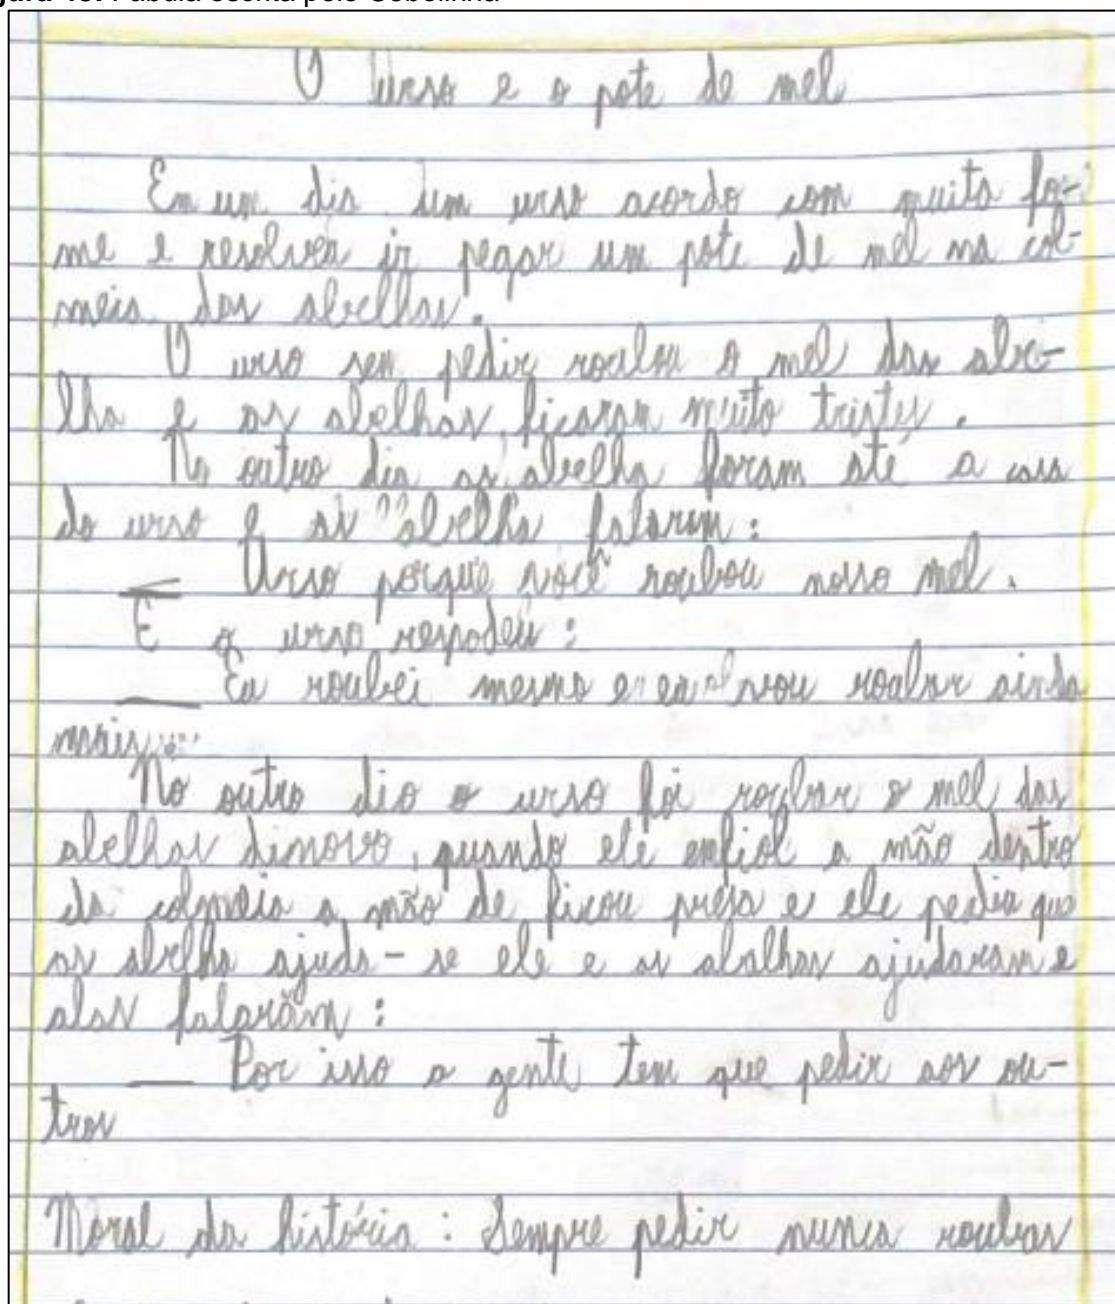 Fábula escrita pelo Cebolinha
O urso e o pote de mel
Em um dia um urso acordo com muita fo-
me e resolveu ir pegar um pote de mel na col-
meia das abelhas.
O urso sem pedir roubou o mel das abe-
lha e as abelhas ficaram muito tristes.
No outro dia as abelha foram até a casa
do urso e as abelha falaram:
— Urso porque você roubou nosso mel.
E o urso respodeu:
— Eu roubei mesmo e eu vou roubar ainda
mais
No outro dia o urso foi roubar o mel das
abelhas dinovo, quando ele enfiol a mão dentro
da colmeia a mão de ficou presa e ele pedia que
as abelha ajuda-se ele e as abalhas ajudaram e
elas falarãm:
— Por isso a gente tem que pedir aos ou-
tros
Moral da história: Sempre pedir nunca roubar